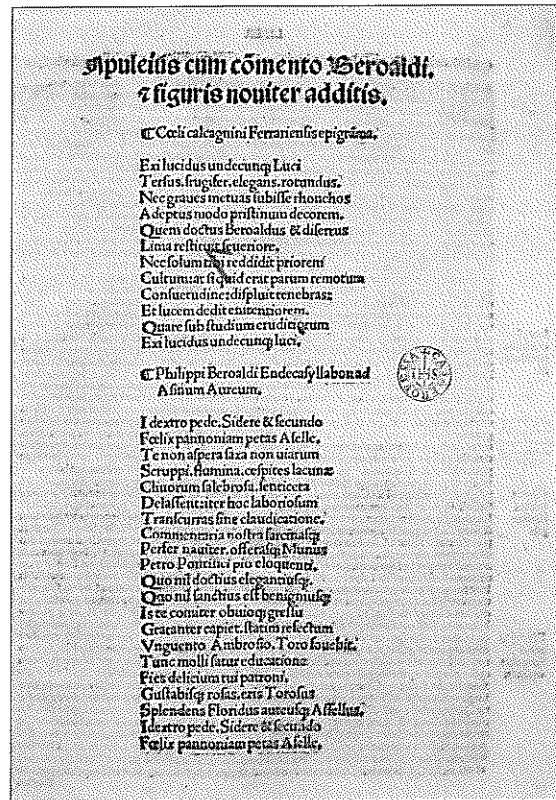 Apuleius cum cōmento Beroaldi.
⁊ figuris noviter additis.
¶ Cœli calcagnini Ferrariensis epigrāma.
Exi lucidus undecunq; Luci
Tersus. frugifer. elegans. rotundus.
Nec graues metuas subisse rhonchos
Adeptus modo pristinum decorem.
Quem doctus Beroaldus & disertus
Lima restituit seueriore.
Nec solum tibi reddidit priorem
Cultum: at si quid erat parum remotum
Consuetudine: dispulit tenebras:
Et lucem dedit enitentiorem.
Quare sub studium eruditiorum
Exi lucidus undecunq; luci.
¶ Philippi Beroaldi Endecasyllabon ad
Asinum Aureum.
I dextro pede. Sidere & secundo
Fœlix pannoniam petas Aselle.
Te non aspera saxa non uiarum
Scruppi. flumina. cespites lacunæ
Cliuorum salebrosa. senticeta
Delassent: iter hoc laboriosum
Transcurras sine claudicatione.
Commentaria nostra sarcinasq;
Perfer nauiter. offerasq; Munus
Petro Pontifici pio eloquenti.
Quo nil doctius elegantiusq;
Quo nil sanctius est benigniusq;
Is te comiter obuioq; gressu
Gratanter capiet. statim refectum
Vnguento Ambrosio. Toro fouebit.
Tunc molli satur educatione
Fies delicium tui patroni.
Gustabisq; rosas. eris Torosus
Splendens Floridus aureusq; Asellus.
I dextro pede. Sidere & secundo
Fœlix pannoniam petas Aselle.